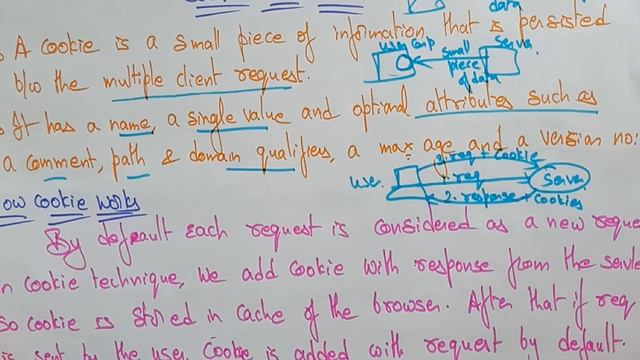 data
A cookie is a small piece of information that is persisted
user comp small piece of data Server
b/w the multiple client request.
It has a name, a single value and optional attributes such as
a comment, path & domain qualifiers, a max age and a version no:
3. req + Cookie
1. req
user Server
2. response + Cookies
ow cookie works
By default each request is considered as a new reque
n cookie technique, we add cookie with response from the servle
so cookie is stored in cache of the browser. After that if req
is sent by the user, Cookie is added with request by default.